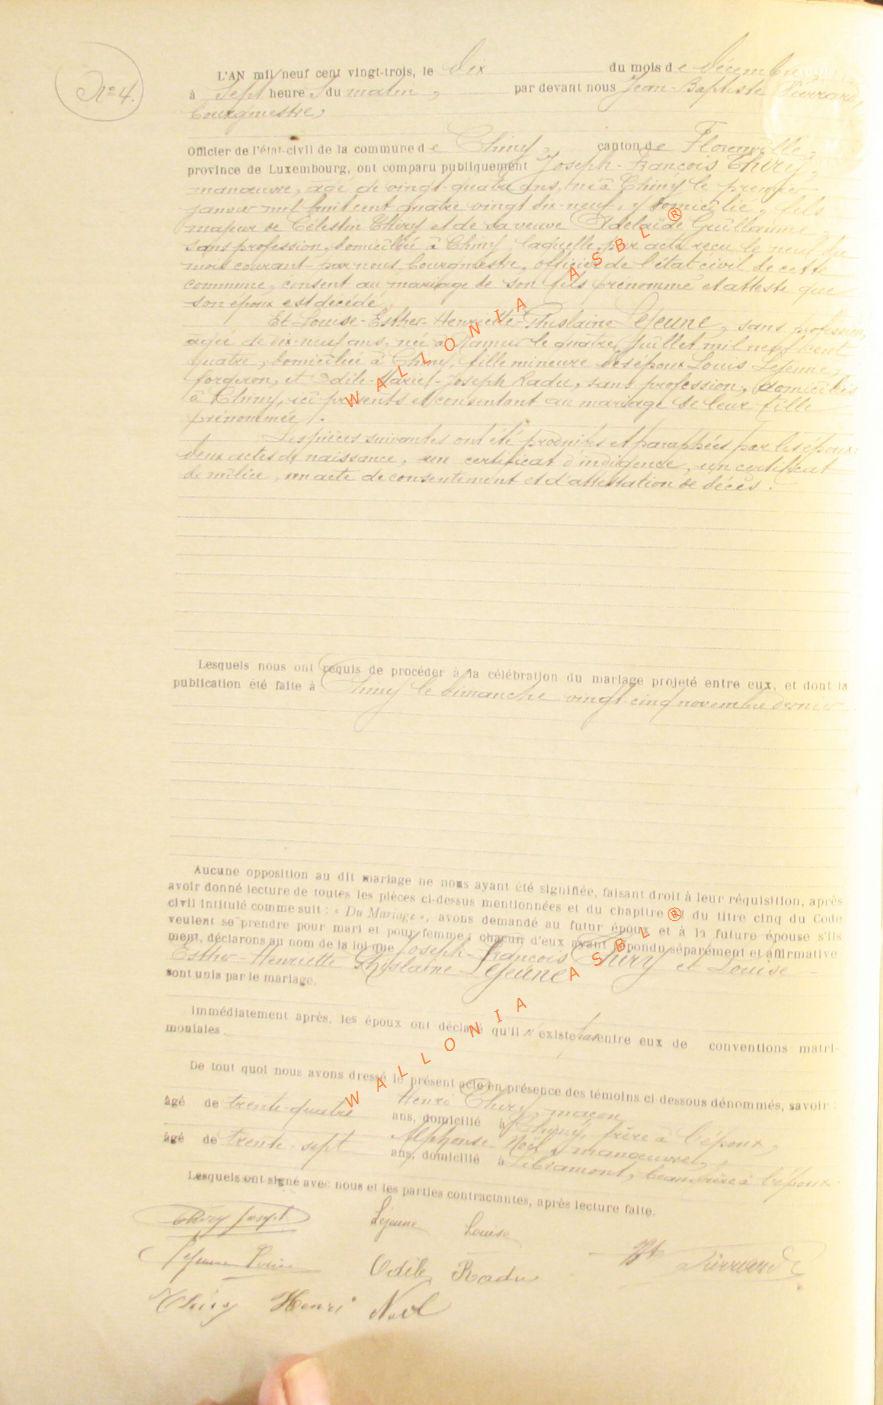 N° 4.
L'AN mil neuf cent vingt-trois, le dix du mois de décembre
à sept heures du matin, par devant nous Jean-Baptiste Pierrard,
bourgmestre,
Officier de l'état-civil de la commune de Chiny, canton de Florenville,
province de Luxembourg, ont comparu publiquement Joseph-François Thiry,
manœuvre, âgé de vingt-quatre ans, né à Chiny le premier
janvier mil huit cent quatre vingt dix-neuf, y domicilié, fils
majeur de Célestin Thiry et de sa veuve Adelaïde Guillaume,
sans profession, domiciliée à Chiny, laquelle, par acte reçu le neuf du
mois courant par nous bourgmestre, officier de l'état civil de cette
commune, consent au mariage de son fils prénommé et atteste que
son époux est décédé.
Et Louise-Esther-Henriette-Ghislaine Lejeune, sans profession,
âgée de dix-neuf ans, née à le quatre juillet mil neuf cent
quatre, domiciliée à Chiny, fille mineure des époux Louis Lejeune,
forgeron, et Odile-Marie-Joseph Radu, sans profession, domiciliés
à Chiny, ici présents et consentant au mariage de leur fille
prénommée.
Les pièces suivantes ont été produites et paraphées par les époux:
deux actes de naissance, un certificat d'indigence, un certificat
de milice, un acte de consentement et d'attestation de décès.
Lesquels nous ont requis de procéder à la célébration du mariage projeté entre eux, et dont la
publication été faite à Chiny le dimanche vingt-cinq novembre dernier
Aucune opposition au dit mariage ne nous ayant été signifiée, faisant droit à leur réquisition, après
avoir donné lecture de toutes les pièces ci-dessus mentionnées et du chapitre du titre cinq du Code
civil intitulé comme suit : « Du Mariage », avons demandé au futur époux et à la future épouse s'ils
veulent se prendre pour mari et pour femme ; chacun d'eux ayant répondu séparément et affirmative
ment, déclarons au nom de la loi que Joseph-François Thiry et Louise-
Esther-Henriette Ghislaine Lejeune
sont unis par le mariage.
Immédiatement après, les époux ont déclaré qu'il n'existe pas entre eux de conventions matri-
moniales
De tout quoi nous avons dressé le présent acte en présence des témoins ci dessous dénommés, savoir :
Henri Thiry, maçon,
âgé de trente-quatre ans, domicilié à Chiny, frère à l'époux,
Alphonse Noël, manœuvre,
âgé de trente-sept ans, domicilié à Libramont, beau-frère à l'époux
Lesquels ont signé avec nous et les parties contractantes, après lecture faite.
Thiry Joseph Lejeune Louise
Lejeune Louis Odile Radu Jb Pierrard
Thiry Henri Noël
WALLONIA ASBL ®
WALLONIA ASBL ®